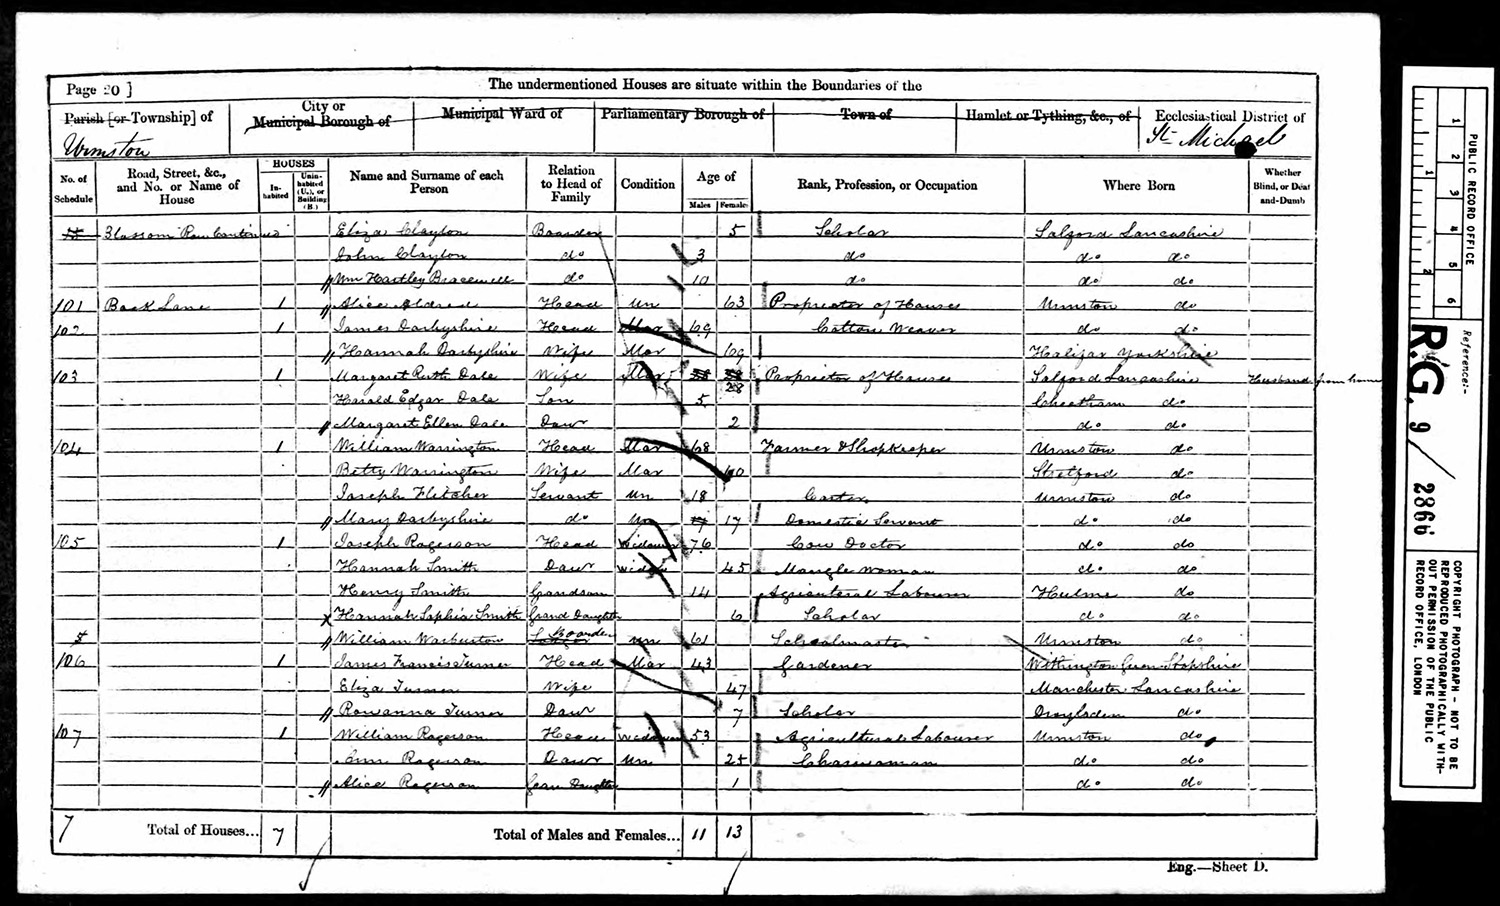 Page 20 ]
The undermentioned Houses are situate within the Boundaries of the
Parish [or Township] of
City or Municipal Borough of
Municipal Ward of
Parliamentary Borough of
Town of
Hamlet or Tything, &c., of
Ecclesiastical District of
Urmston
St Michael
No. of Schedule
Road, Street, &c., and No. or Name of House
HOUSES
In-habited
Unin-habited (U.), or Building (B.)
Name and Surname of each Person
Relation to Head of Family
Condition
Age of
Males
Females
Rank, Profession, or Occupation
Where Born
Whether Blind, or Deaf and-Dumb
Blossom Row Continued Eliza Clayton Boarder 5 Scholar Salford Lancashire
John Clayton do 3 do do do
Wm Hartley Bracewell do 10 do do do
101 Back Lane 1 Alice Aldred Head Un 63 Proprietor of Houses Urmston do
102 1 James Darbyshire Head Mar 69 Cotton Weaver do do
Hannah Darbyshire Wife Mar 69 Halifax Yorkshire
103 1 Margaret Ruth Dale Wife Mar 28 Proprietor of Houses Salford Lancashire Husband from home
Harold Edgar Dale Son 5 Cheetham do
Margaret Ellen Dale Daur 2 do do
104 1 William Warrington Head Mar 68 Farmer & Shopkeeper Urmston do
Betty Warrington Wife Mar 60 Stretford do
Joseph Fletcher Servant Un 18 Carter Urmston do
Mary Darbyshire do Un 17 Domestic Servant do do
105 1 Joseph Rogerson Head Widower 76 Cow Doctor do do
Hannah Smith Daur Widow 45 Mangle Woman do do
Henry Smith Grandson 14 Agricultural Labourer Hulme do
Hannah Sophia Smith Grand Daughter 6 Scholar do do
William Warburton Boarder Un 61 Schoolmaster Urmston do
106 1 James Francis Turner Head Mar 43 Gardener Withington Green Shopshire
Eliza Turner Wife 47 Manchester Lancashire
Rowanna Turner Daur 7 Scholar Droylsden do
107 1 William Rogerson Head Widower 53 Agricultural Labourer Urmston do
Ann Rogerson Daur Un 25 Charwoman do do
Alice Rogerson Gran Daughter 1 do do
7 Total of Houses... 7 Total of Males and Females... 11 13
Eng.—Sheet D.
PUBLIC RECORD OFFICE
1 2 3 4 5 6
1 2
Reference:-
R.G. 9 / 2866
COPYRIGHT PHOTOGRAPH - NOT TO BE
REPRODUCED PHOTOGRAPHICALLY WITH-
OUT PERMISSION OF THE PUBLIC
RECORD OFFICE, LONDON